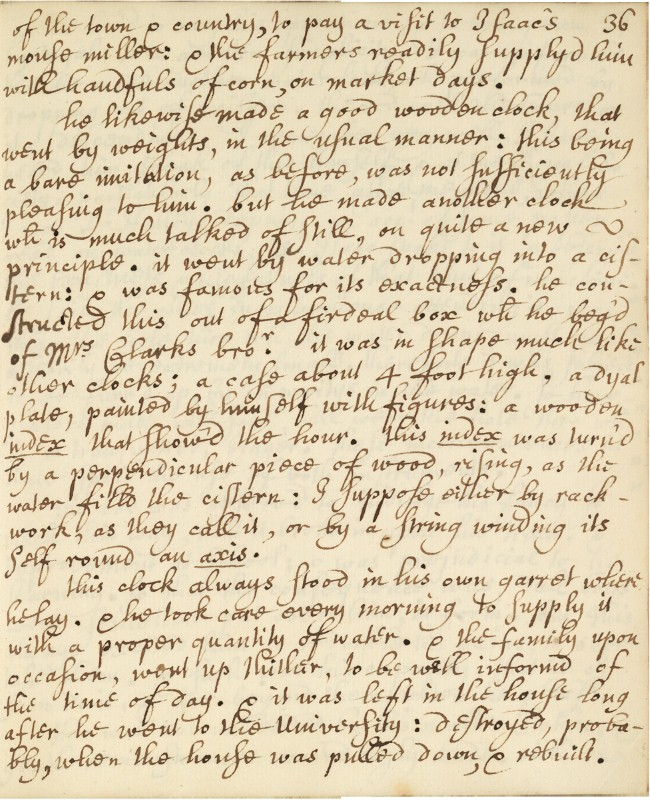 of the town & country, to pay a visit to Isaac's 36
mouse miller: & the farmers readily supplyd him
with handfuls of corn, on market days.
he likewise made a good wooden clock, that
went by weights, in the usual manner: this being
a bare imitation, as before, was not sufficiently
pleasing to him. but he made another clock
wh is much talked of still, on quite a new ~
principle. it went by water dropping into a cis-
tern: & was famous for its exactness. he con-
structed this out of a firdeal box wh he beg'd
of Mrs Clarks bror. it was in shape much like
other clocks; a case about 4 foot high, a dyal
plate, painted by himself with figures: a wooden
index that show'd the hour. this index was turn'd
by a perpendicular piece of wood, rising, as the
water filld the cistern: I suppose either by rack-
work, as they call it, or by a string winding its
self round an axis.
this clock always stood in his own garret where
he lay. & he took care every morning to supply it
with a proper quantity of water. & the family upon
occasion, went up thither, to be well informd of
the time of day. & it was left in the house long
after he went to the University: destroyed, proba-
bly, when the house was pulled down, & rebuilt.